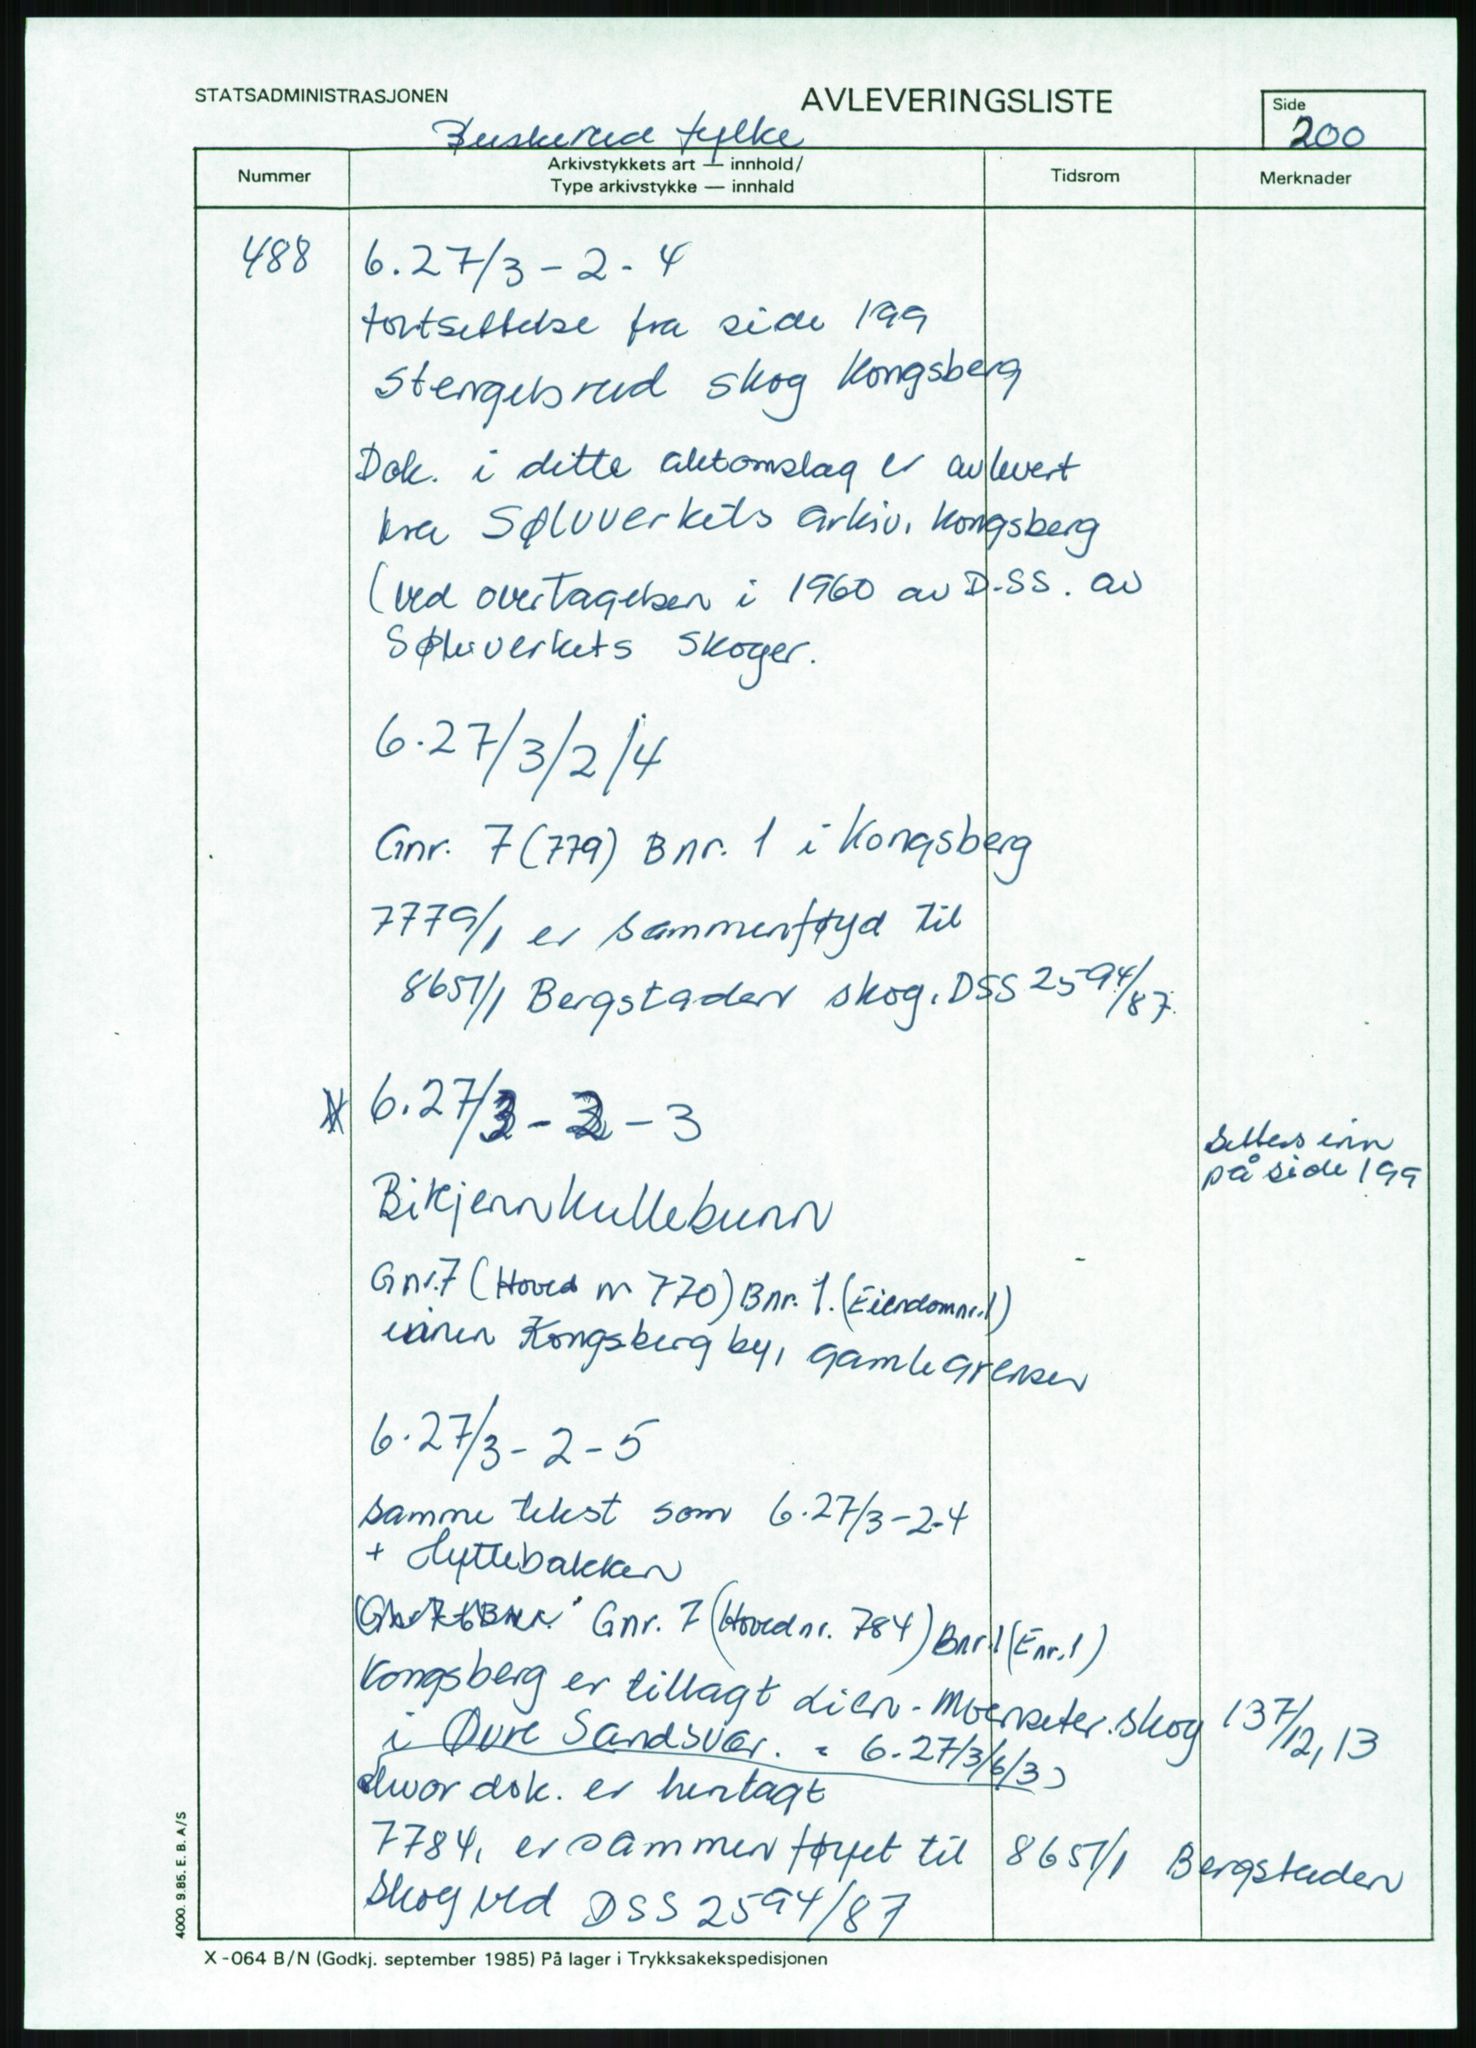 STATSADMINISTRASJONEN
AVLEVERINGSLISTE
Side
200
Buskerud fylke
Nummer
Arkivstykkets art — innhold/
Type arkivstykke — innhald
Tidsrom
Merknader
488 6.27/3-2-4
fortsettelse fra side 199
Stengelsrud skog Kongsberg
Dok. i dette aktomslag er avlevert
fra Sølvverkets arkiv, Kongsberg
(ved overtagelsen i 1960 av D.SS. av
Sølvverkets skoger.
6.27/3/2/4
Gnr. 7 (779) Bnr. 1 i Kongsberg
7779/1 er sammenføyd til
8651/1 Bergstaden skog. DSS 2594/87
6.27/3-2-3
Settes inn
på side 199
Bikjennkullebunn
Gnr. 7 (Hoved nr 770) Bnr. 1. (Eiendomnr.1)
innen Kongsberg by, gamle grenser
6.27/3-2-5
samme tekst som 6.27/3-2-4
+ Hyttebakken
Gnr. 7 (Hovednr. 784) Bnr.1 (Enr.1)
Kongsberg er tillagt Lien-Moenseter.skog 137/12,13
i Øvre Sandsvær. = 6.27/3/6/3)
hvor dok. er henlagt
7784, er sammenføyet til 8651/1 Bergstaden
skog ved DSS 2594/87
4000. 9.85. E. B. A/S
X-064 B/N (Godkj. september 1985) På lager i Trykksakekspedisjonen